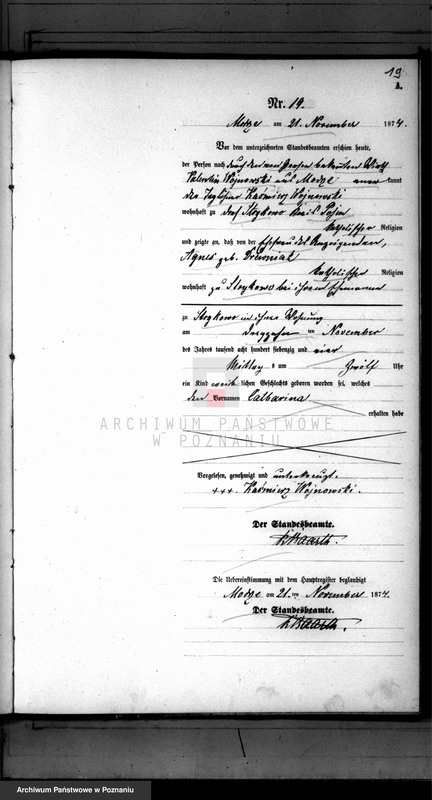 19
A.
Nr. 19.
Modze am 21. November 1874.
Vor dem unterzeichneten Standesbeamten erschien heute,
der Person nach durch den von Person bekannten Wirth
Valentin Wojnowski aus Modze anerkannt
der Kaźmierz Wojnowski
wohnhaft zu Dorf Kreis
katholischer Religion
und zeigte an, daß von der Ehefrau des Anzeigenden,
Agnes geb.
katholischer Religion
wohnhaft zu bei ihrem Ehemanne
zu in ihrer Wohnung
am November
des Jahres tausend acht hundert siebenzig und vier
Mittag s um Zwölf Uhr
ein Kind weiblichen Geschlechts geboren worden sei, welches
den Vornamen Catharina
erhalten habe
ARCHIWUM PAŃSTWOWE
W POZNANIU
Vorgelesen, genehmigt und unterkreuzt.
+++. Kaźmierz Wojnowski.
Der Standesbeamte.
Die Uebereinstimmung mit dem Hauptregister beglaubigt
Modze am 21. ten November 1874.
Der Standesbeamte.
Archiwum Państwowe w Poznaniu